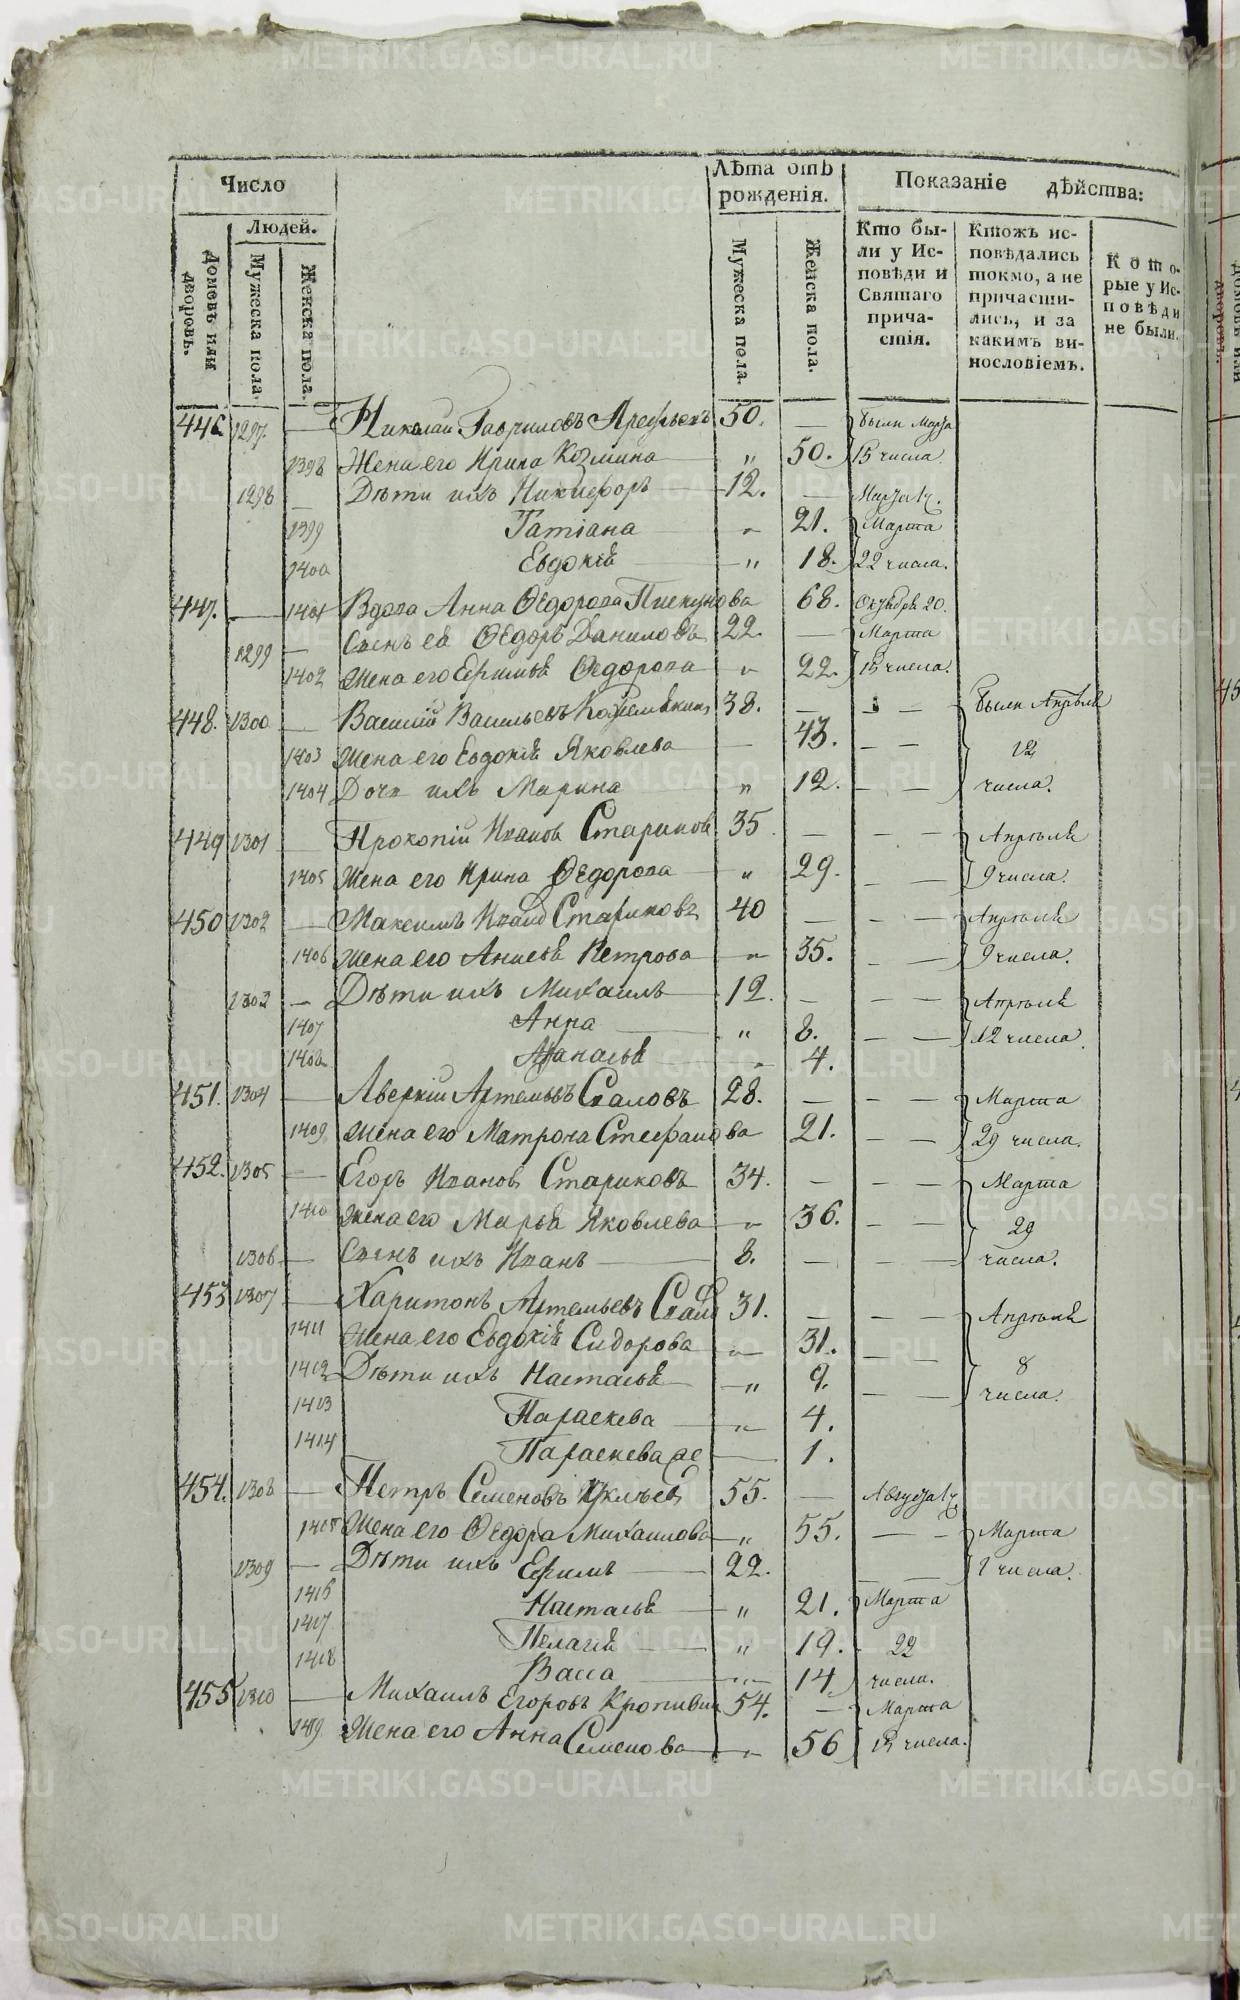 Число
Людей.
Домовъ или дворовъ.
Мужеска пола.
Женска пола.
Лѣта отъ рожденія.
Мужеска пола.
Женска пола.
Показаніе дѣйства:
Кто бы-
ли у Ис-
повѣди и
Святаго
прича-
стія.
Ктожъ ис-
повѣдались
токмо, а не
причасти-
лись, и за
какимъ ви-
нословіемъ.
Кото-
рые у Ис-
повѣди
не были.
446 1297. — Николай Гавриловъ 50. — были Марта
1398 Жена его Ирина Козмина „ 50. 15 числа
1298 — Дѣти ихъ Никифоръ 12. —
1399 Татіана „ 21. Марта
1400 Евдокія „ 18. 22 числа.
447. — 1401 Вдова Анна Ѳедорова Пискунова 68. Октября 20.
1299 — Сынъ ея Ѳедоръ Даниловъ 22. — Марта
1402 Жена его Ѳедорова „ 22. 15 числа.
448. 1300 — Василій Васильевъ 38. — — были Апрѣля
1403 Жена его Евдокія Яковлева — 43. — — 12
1404 Дочь ихъ Марина „ 12. — — числа.
449 1301 — Прокопій Иванов Стариков 35. — — — Апрѣля
1405 Жена его Ирина Ѳедорова „ 29. — — 9 числа.
450 1302 — Максимъ Стариковъ 40 — — — Апрѣля
1406 Жена его Анисья Петрова „ 35. — — 9 числа.
1303 — Дѣти ихъ Михаилъ 12. — — — Апрѣля
1407 Анна „ 8. — — 12 числа.
1408 „ 4.
451. 1304 — Аверкіи Артемьевъ 28. — — — Марта
1409. Жена его Матрона Стефанова 21. — — 29 числа.
452. 1305 — Егоръ Иванов Стариковъ 34. — — — Марта
1410 Жена его Марья Яковлева „ 36. — — 29
1306 — Сынъ ихъ Иванъ 8. — — — числа.
453 1307 — Харитонъ Артемьевъ 31. — — — Апрѣля
1411 Жена его Евдокія Сидорова „ 31. — — 8
1412 Дѣти ихъ Настасья „ 9. — — числа.
1413 Параскева „ 4.
1414 Параскева 1.
454. 1308 — Петръ Семеновъ 55. — Августа
1415 Жена его Ѳедора Михаилова „ 55. — — Марта
1309 — Дѣти ихъ Ефимъ 22. числа.
1416 Настасья „ 21. Марта
1417 Пелагія „ 19. 22
1418 Васса 14 числа.
455 1310 — Михаилъ Егоровъ 54. — Марта
1419. Жена его Анна Семенова „ 56 15 числа.
METRIKI.GASO-URAL.RU